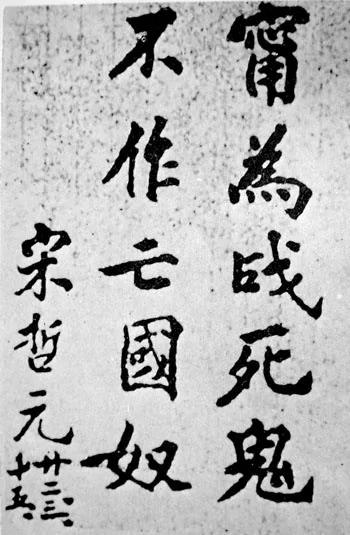 甯為战死鬼
不作亡國奴
宋哲元
廿二、三、
十五、